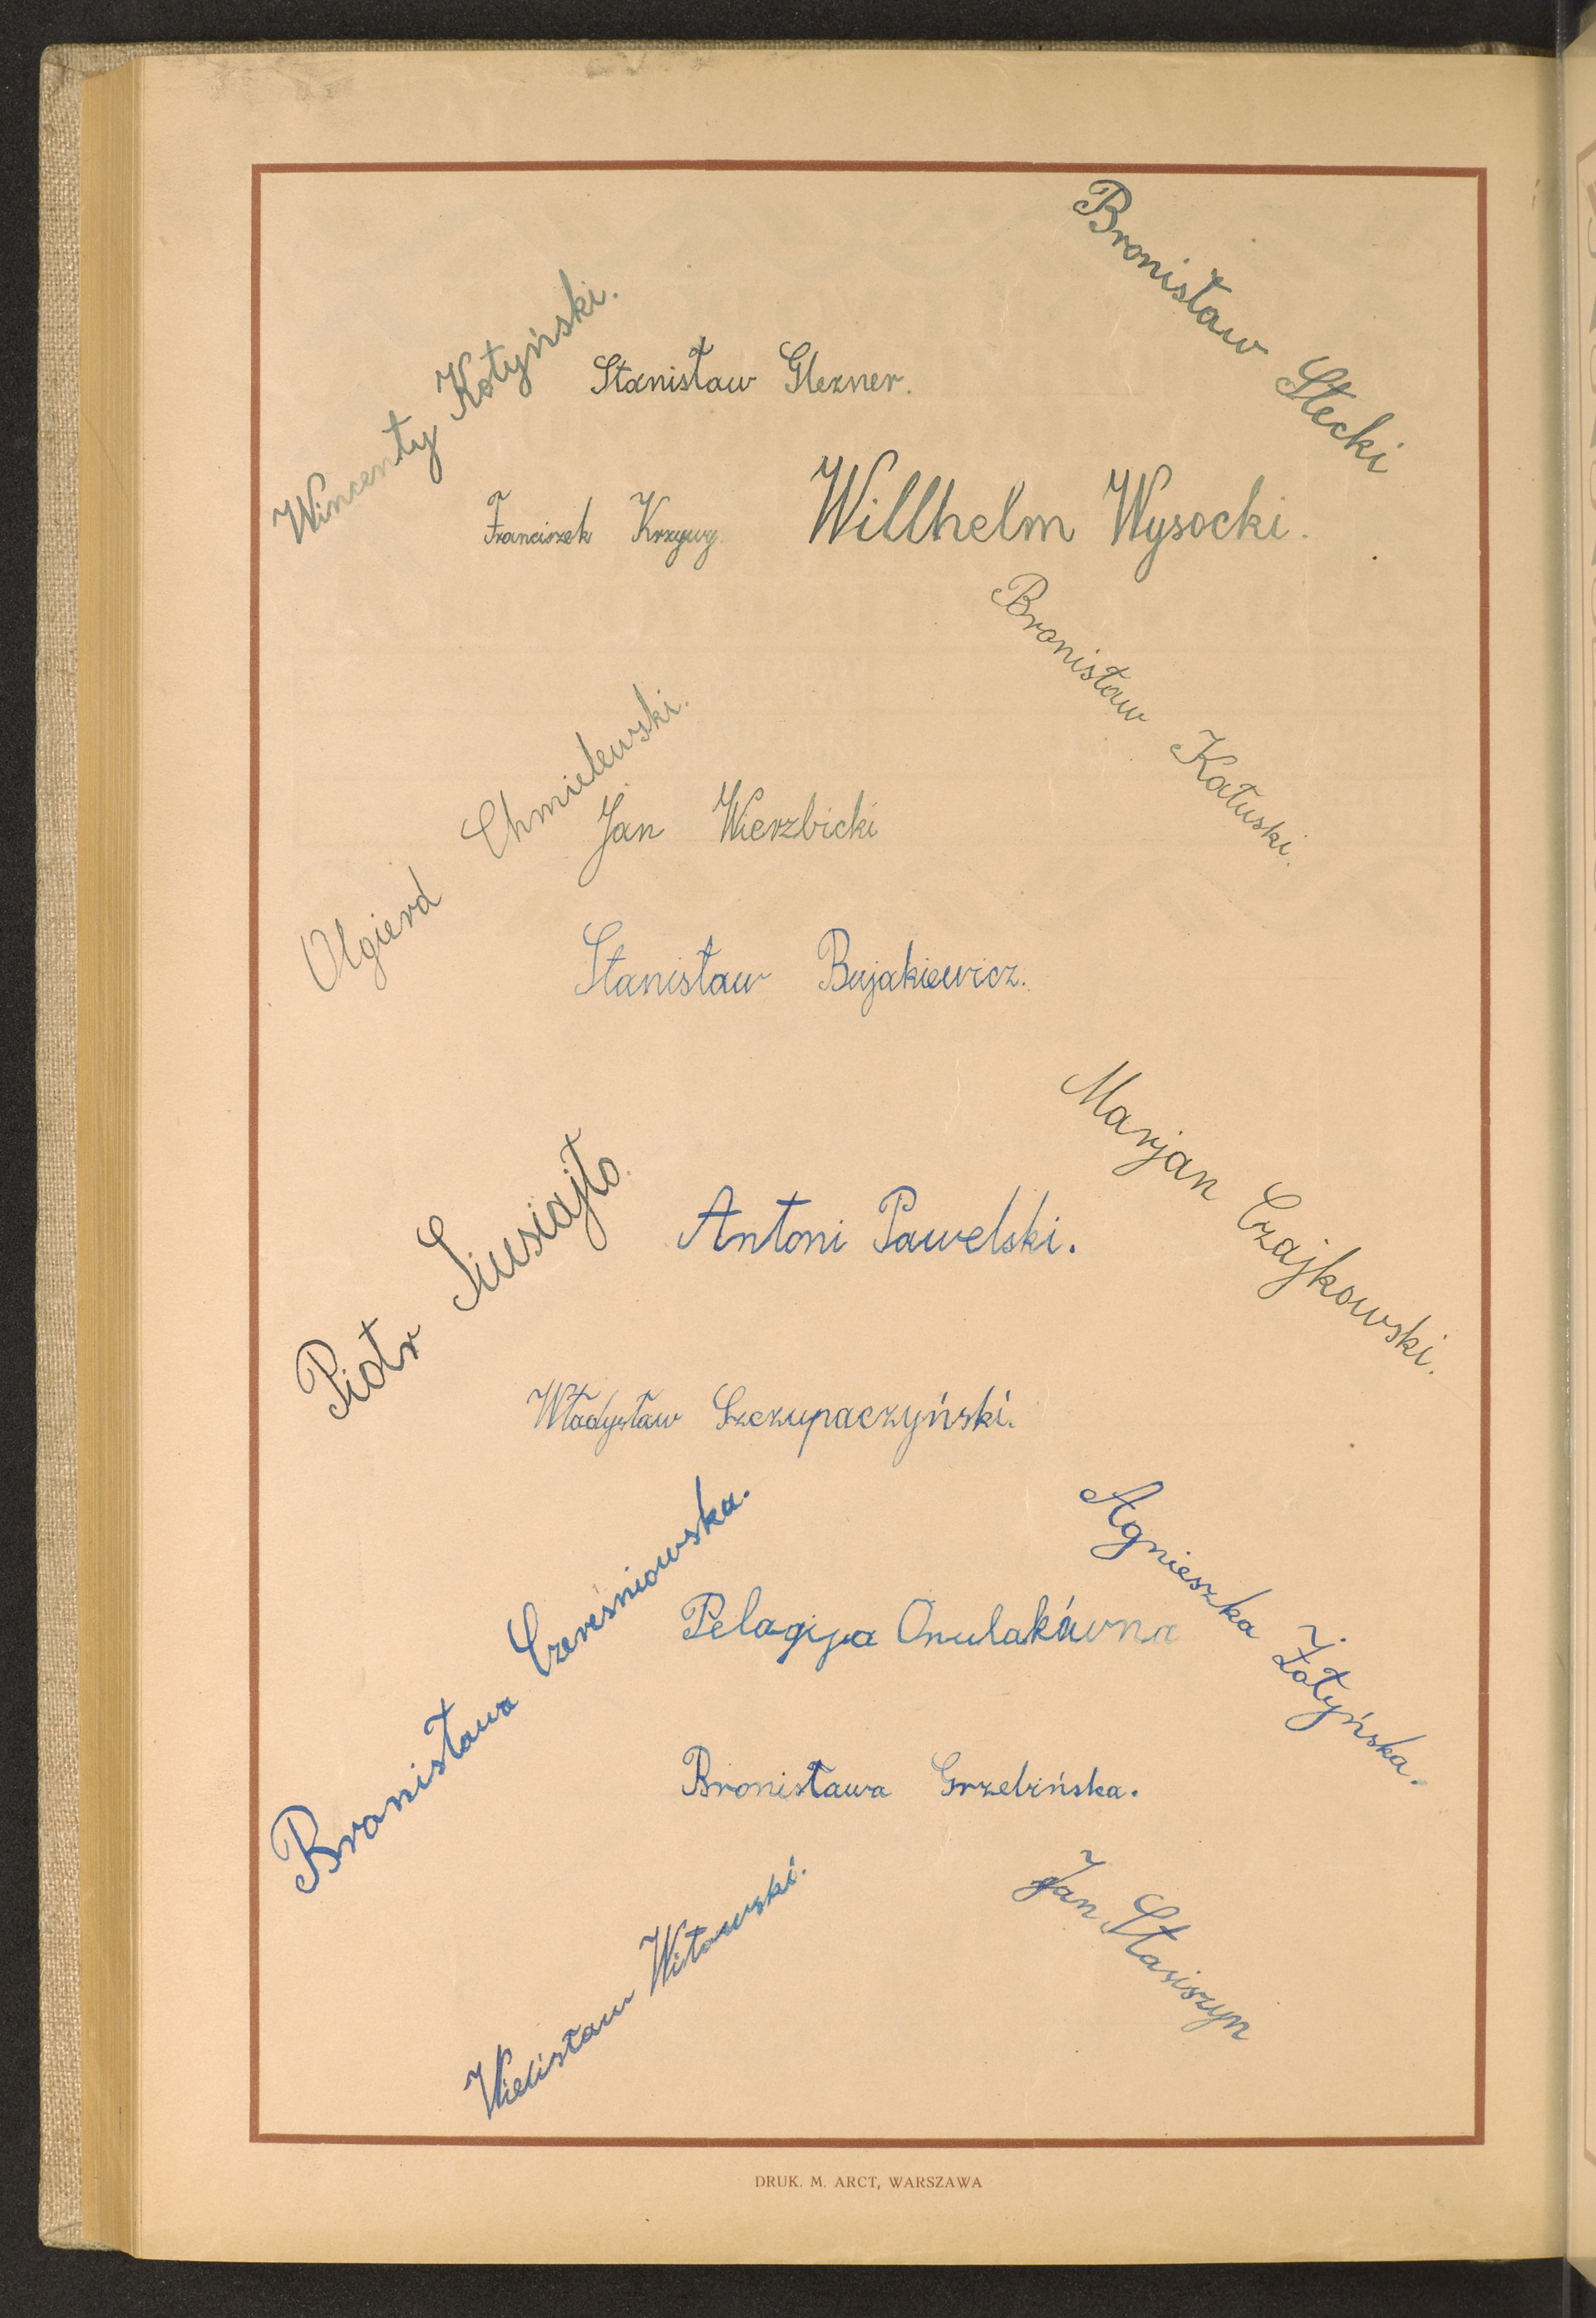 Bronisław Stecki
Wincenty Kołyński.
Stanisław Glezner.
Franciszek Krzywy.
Willhelm Wysocki.
Bronisław Kałuski.
Olgierd Chmielewski.
Jan Wierzbicki
Stanisław Bujakiewicz.
Marjan Czajkowski.
Piotr Siusiajło.
Antoni Pawelski.
Władysław Szczupaczyński.
Bronisława Czereśniowska.
Agnieszka Żołyńska.
Pelagija Onulakówna
Bronisława Grzebińska.
Wielisław Witowski.
Jan Stasiszyn
DRUK. M. ARCT, WARSZAWA